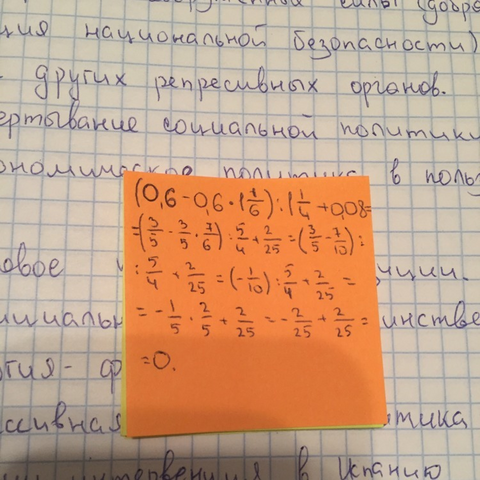 (добро
ция национальной безопасности)
других репресивных органов.
ертывание социальной политики
ономическое политика в поль
(0,6-0,6·1 1/6):1 1/4+0,08=
=(3/5-3/5·7/6):5/4+2/25=(3/5-7/10):
:5/4+2/25=(-1/10):5/4+2/25=
=-1/5·2/5+2/25=-2/25+2/25=
=0.
овое ции.
инстве
тия-
ссивная тика
интервенция в Испанию